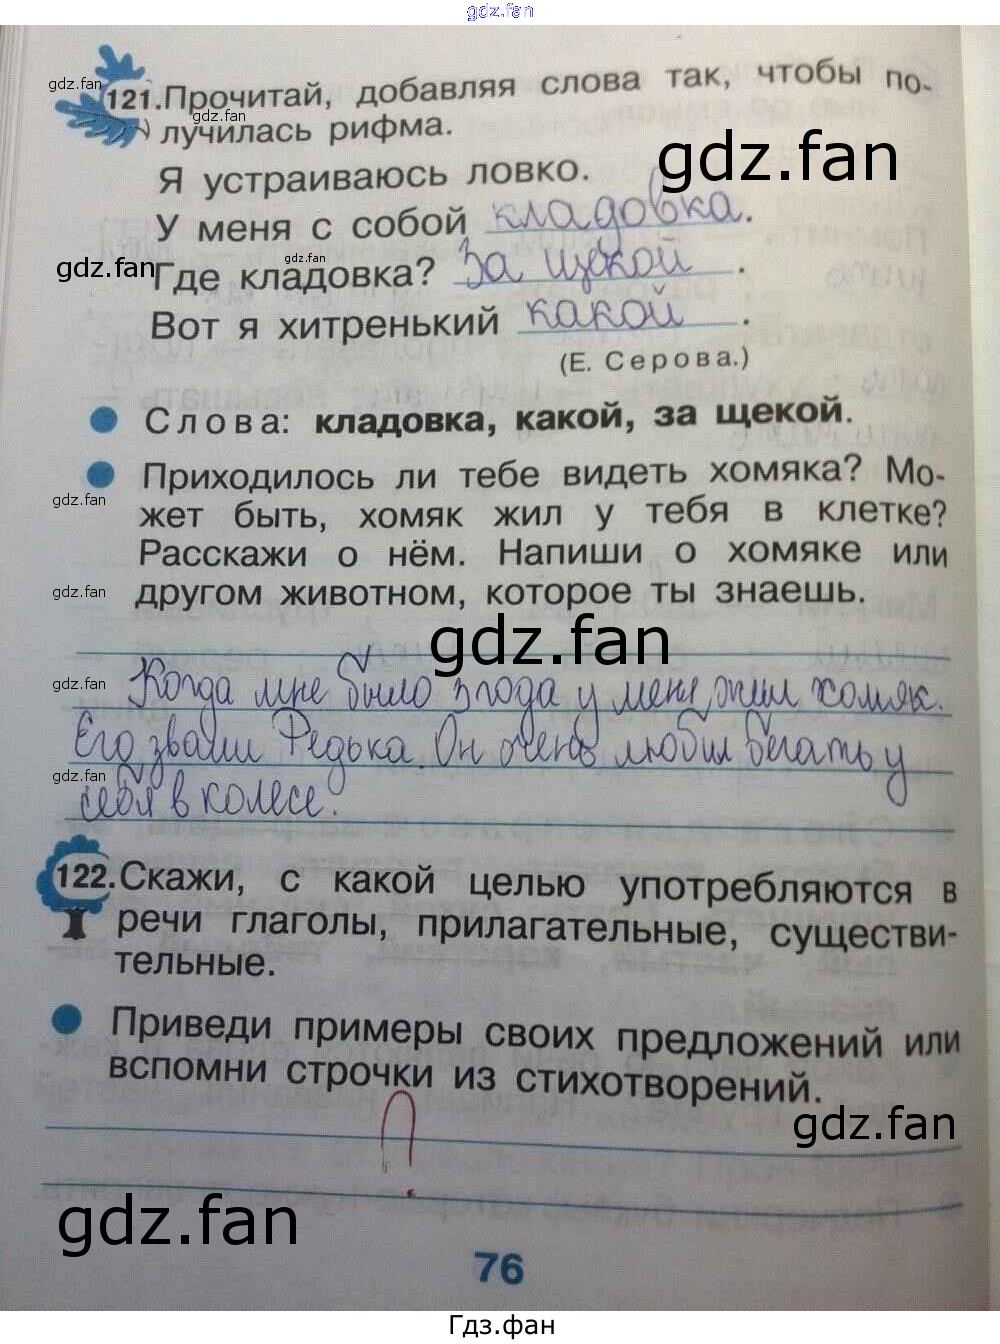 gdz.fan
gdz.fan
121. Прочитай, добавляя слова так, чтобы по-
gdz.fan
лучилась рифма.
gdz.fan
Я устраиваюсь ловко.
У меня с собой кладовка.
gdz.fan
gdz.fan
Где кладовка? За щекой.
Вот я хитренький какой.
(Е. Серова.)
Слова: кладовка, какой, за щекой.
Приходилось ли тебе видеть хомяка? Мо-
gdz.fan
жет быть, хомяк жил у тебя в клетке?
Расскажи о нём. Напиши о хомяке или
gdz.fan
другом животном, которое ты знаешь.
gdz.fan
gdz.fan
Когда мне было 3 года у меня жил хомяк.
Его звали Редька. Он очень любил бегать у
gdz.fan
себя в колесе.
122. Скажи, с какой целью употребляются в
речи глаголы, прилагательные, существи-
тельные.
Приведи примеры своих предложений или
вспомни строчки из стихотворений.
gdz.fan
?
gdz.fan
76
Гдз.фан